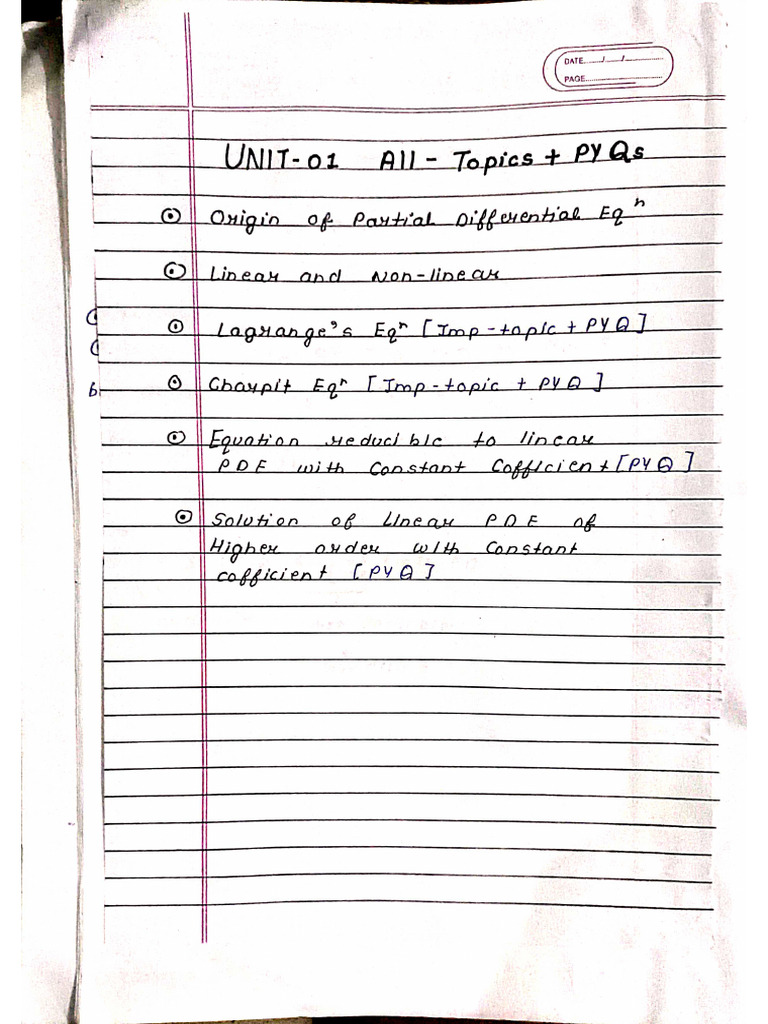 DATE......../......./.................
PAGE..................................
UNIT-01 All - Topics + PYQs
Origin of Partial Differential Eqⁿ
Linear and Non-linear
Lagrange's Eqⁿ [Imp-topic + PYQ]
Charpit Eqⁿ [Imp-topic + PYQ]
Equation reducible to linear
PDE with Constant Cofficient [PYQ]
Solution of Linear PDE of
Higher order with Constant
cofficient [PYQ]